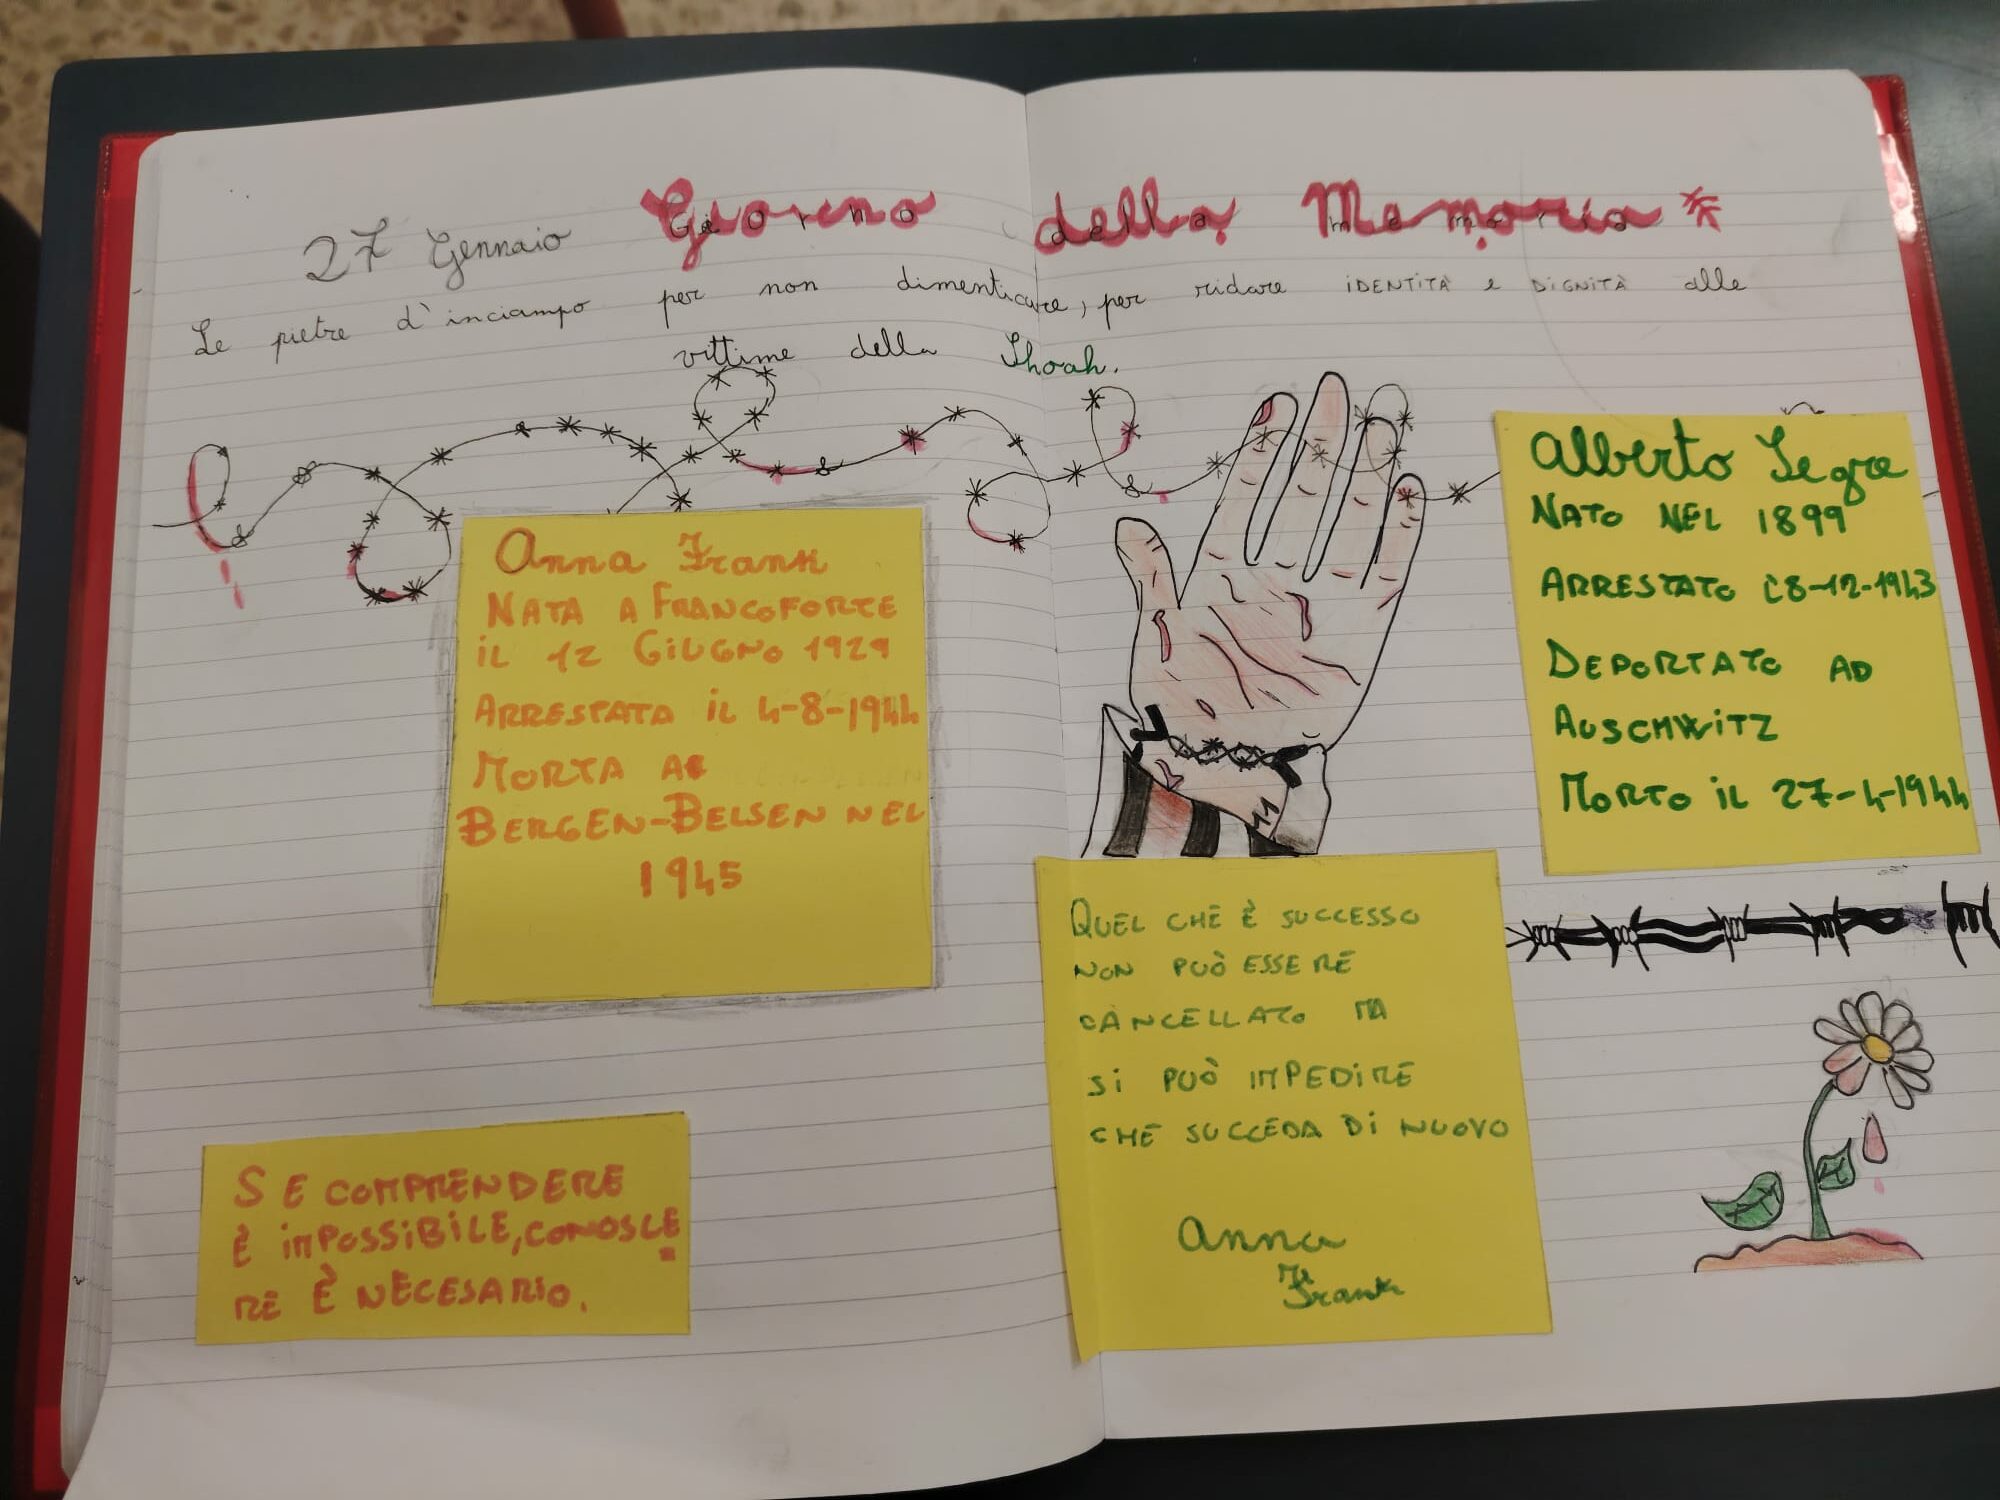 27 Gennaio Giorno della Memoria
Le pietre d'inciampo per non dimenticare, per ridare IDENTITÀ e DIGNITÀ alle
vittime della Shoah.
Anna Frank
NATA A FRANCOFORTE
IL 12 GIUGNO 1929
ARRESTATA IL 4-8-1944
MORTA A
BERGEN-BELSEN NEL
1945
SE COMPRENDERE
È IMPOSSIBILE, CONOSCE
RE È NECESARIO.
Alberto Segre
NATO NEL 1899
ARRESTATO 8-12-1943
DEPORTATO AD
AUSCHWITZ
MORTO IL 27-4-1944
QUEL CHE È SUCCESSO
NON PUÒ ESSERE
CANCELLATO MA
SI PUÒ IMPEDIRE
CHE SUCCEDA DI NUOVO
Anna
Frank